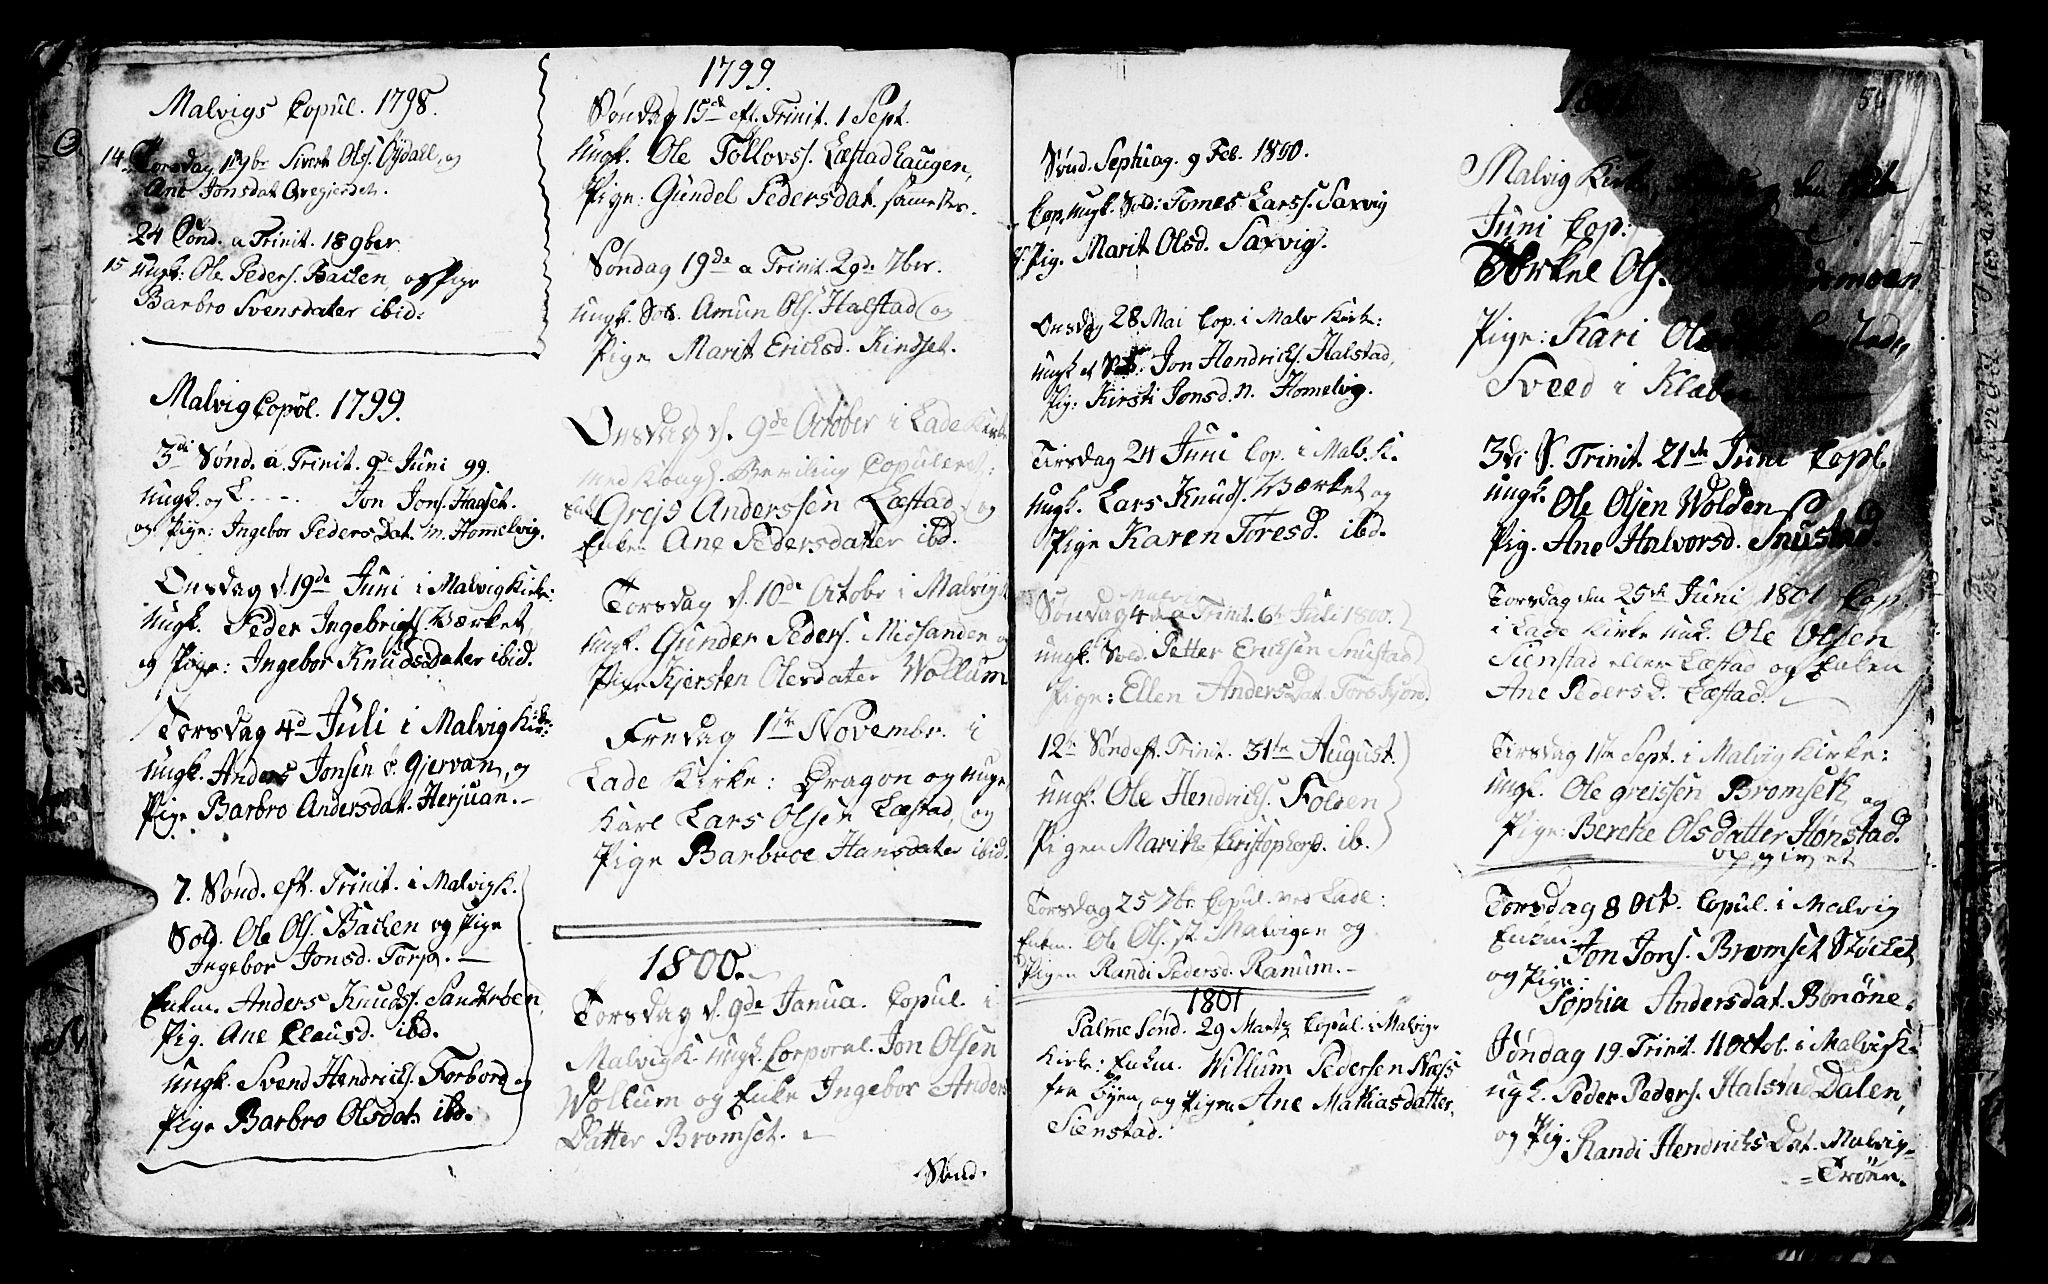 Malvigs Copul. 1798.
14. Torsdag 1 9br Sivert Ols. Øydall, og
Ane Jonsdat
24 Sønd. a Trinit. 18 9ber
15 ungk: Ole Peders. Bachen, og Pige
Barbro Svensdater ibid.
Malvig Copul. 1799.
3di Sønd. a Trinit. 9de Juni 99.
ungk. og Jon Jons.
og Pige: Ingebor Peders Dat. n. Hommelvig.
Onsdag d. 19de Juni i Malvig Kirke:
ungk. Peder Ingebrigts. Værket,
og Pige: Ingebor Knudsdater ibid.
Torsdag 4d Juli i Malvig Kirke:
ungk. Anders Jonsen ø. Gjervan, og
Pige Barbro Andersdat. Herjuan.
7. Sønd. eft. Trinit. i Malvig K.
Sold. Ole Ols. Bachen og Pige
Ingebor Jonsd. Torp.
Enkm. Anders Knuds. Sandrøen,
Pig. Ane Clausd. ibd.
ungk. Svend Hendrichs. Forbord og
Pige Barbro Olsdat. ibd.
1799.
Søndag 15de eft. Trinit. 1 Sept.
ungk. Ole Tollovs. Læstadhaugen,
Pige: Gundel Pedersdat. sammested.
Søndag 19de a Trinit. 29de 7ber.
ungk. Sold. Amun Ols. Halstad og
Pige Marit Ericksd. Kindset.
Onsdag d. 9de October i Lade Kirke
med Kongl. Bevilling Copuleret:
Enkm. Grejs Anderssen Læstad og
Enke Ane Pedersdatter ibd.
Torsdag d. 10de Octobr i Malvig K.
ungk. Gunder Peders. Midsanden og
Pige Kjersten Olesdater Wollum
Fredag 1ste Novembr. i
Lade Kirke: Dragon og unge
Karl Lars Olsen Læstad, og
Pige Barbroe Hansdater ibid.
1800.
Torsdag d. 9de Janua. Copul. i
Malvig K. ungk. Corporal Jon Olsen
Wollum og Enke Ingebor Anders
Datter Bromset.
Sønd.
Sønd. Septuag. 9 Feb. 1800.
Cop. ungk. Sold: Tomes Lars. Saxvig
og Pig. Marit Olsd. Saxvig.
Onsdag 28 Mai Cop. i Malv Kirk:
ungk et Sold. Jon Hendrichs. Halstad,
Pig: Kirsti Jonsd. n. Homelvig.
Tirsdag 24 Juni Cop. i Malv. K.
ungk. Lars Knuds. Værket og
Pige Karen Toresd. ibd.
Malvig
Søndag 4de a Trinit. 6te Juli 1800.
ungk. Sold. Petter Ericksen Snustad
Pige: Ellen Anders Dat. Torp
12te Sønd eft. Trinit. 31te August.
ungk. Ole Hendrichs. Folden
Pigen Marith Christophersd. ib.
Torsdag 25 7br. Copul. ved Lade:
Enkm. Ole Ols. st. Malvigen og
Pigen Randi Pedersd. Ranum.
1801
Palme Sønd. 29 Martz Copul. i Malvig
Kirke: Enkm. Willum Pedersen Næss
fra Byen, og Pigen Ane Mathiasdatter
Sienstad.
56
Malvig Kirke
Juni Cop:
Torkel Ols.
Pige: Kari
Sveed i Klæbu
3di S. Trinit. 21de Juni Copl.
ungk. Ole Olsen Wolden
Pig. Ane Halvorsd. Snustad.
Torsdag den 25de Juni 1801 Cop.
i Lade Kirke unk. Ole Olsen
Sienstad eller Læstad og Enken
Ane Pedersd. Læstad.
Tirsdag 1ste Sept. i Malvig Kirke:
ungk. Ole Greissen Bromseth og
Pige: Berethe Olsdatter Hønstad.
opgivet
Torsdag 8 Oct. Copul. i Malvig
Enkm: Jon Jons. Bromset Støchet
og Pige: Sophia Andersdat.
Søndag 19. Trinit. 11 Octob. i Malvig K:
ugk. Peder Peders. Halstad Dalen,
og Pig. Randi Hendrichs Dat. Malvig=
=Trøen.